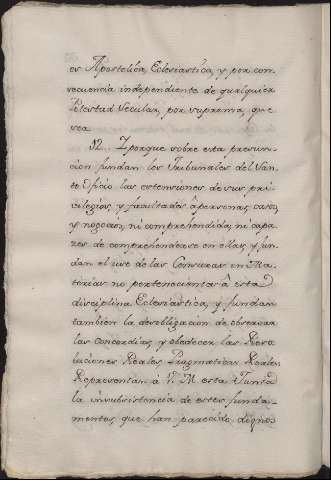 es Apostolica, Eclesiastica, y por con-
secuencia independiente de qualquiera
Potestad Secular, por suprema, que
sea.
52.. Y porque sobre esta presun-
cion fundan los Tribunales del San-
to Oficio las estensiones de sus pri-
vilegios, y facultades â personas, casos,
y negocios, ni comprehendidos, ni capa-
zes de comprehenderse en ellas, y fun-
dan el uso de las Censuras en Ma-
terias no pertenecientes â esta
disciplina Eclesiastica, y fundan
tambien la desobligacion de observar
las concordias, y obedecer las Reso-
luciones Reales, Pragmaticas Reales,
Representan â V. M. esta Junta
la insubsistencia de estos funda-
mentos, que han parecido dignos